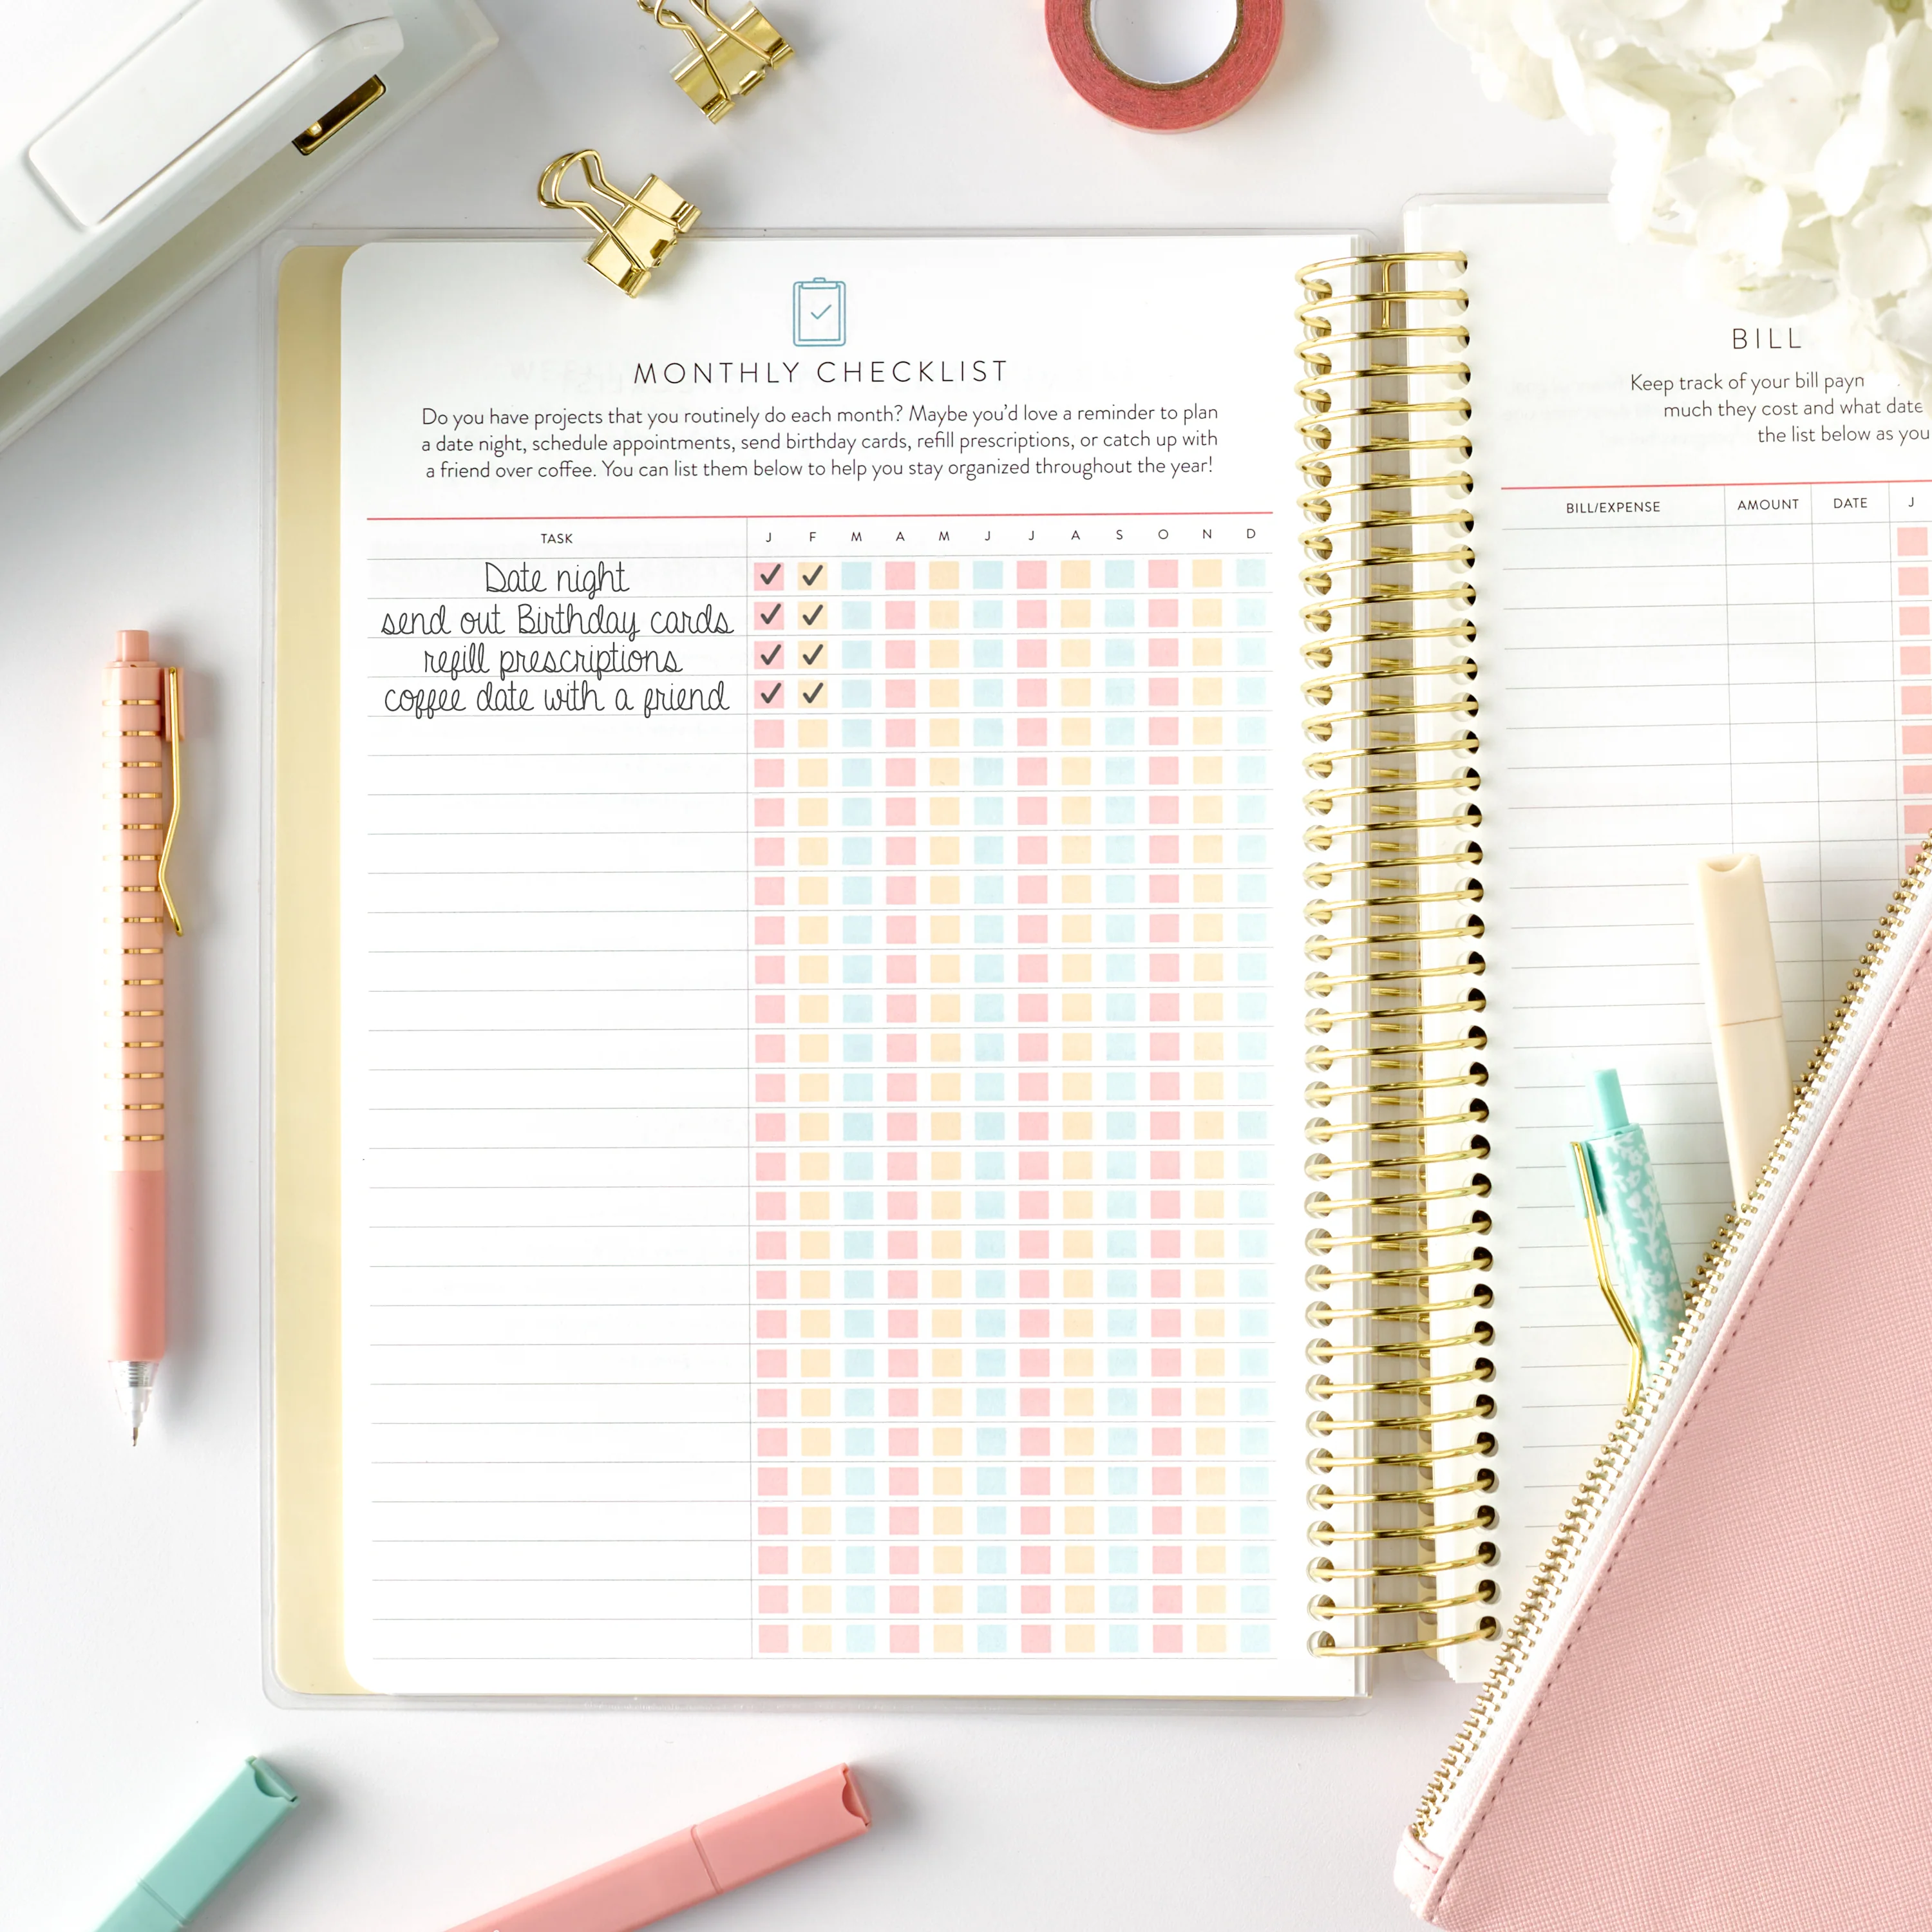 MONTHLY CHECKLIST
Do you have projects that you routinely do each month? Maybe you'd love a reminder to plan
a date night, schedule appointments, send birthday cards, refill prescriptions, or catch up with
a friend over coffee. You can list them below to help you stay organized throughout the year!
TASK J F M A M J J A S O N D
Date night ✓ ✓
send out Birthday cards ✓ ✓
refill prescriptions ✓ ✓
coffee date with a friend ✓ ✓
BILL
Keep track of your bill
much they cost and what date
the list below as you
BILL/EXPENSE AMOUNT DATE J